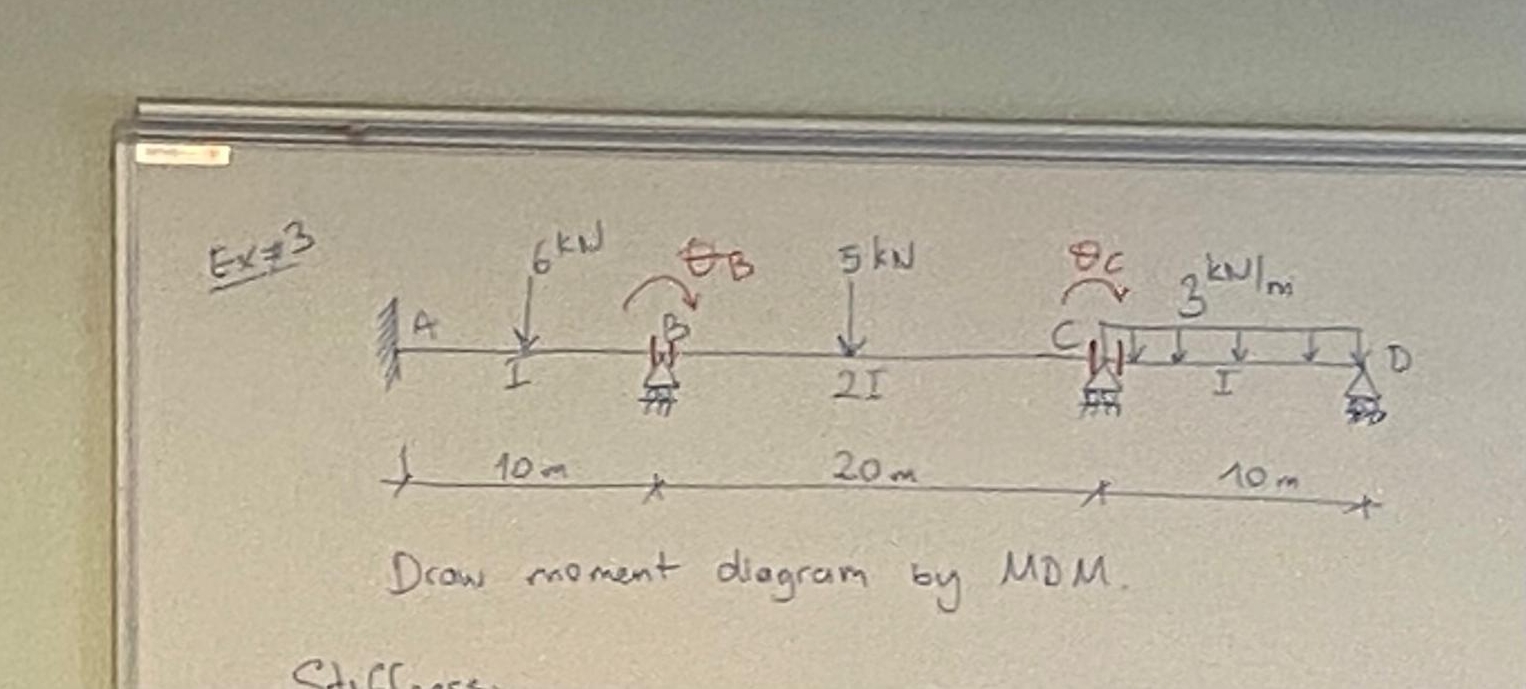 Ex#3
6 kN θB 5 kN θC 3 kN/m
A B C D
I 2I I
10 m 20 m 10 m
Draw moment diagram by MDM.